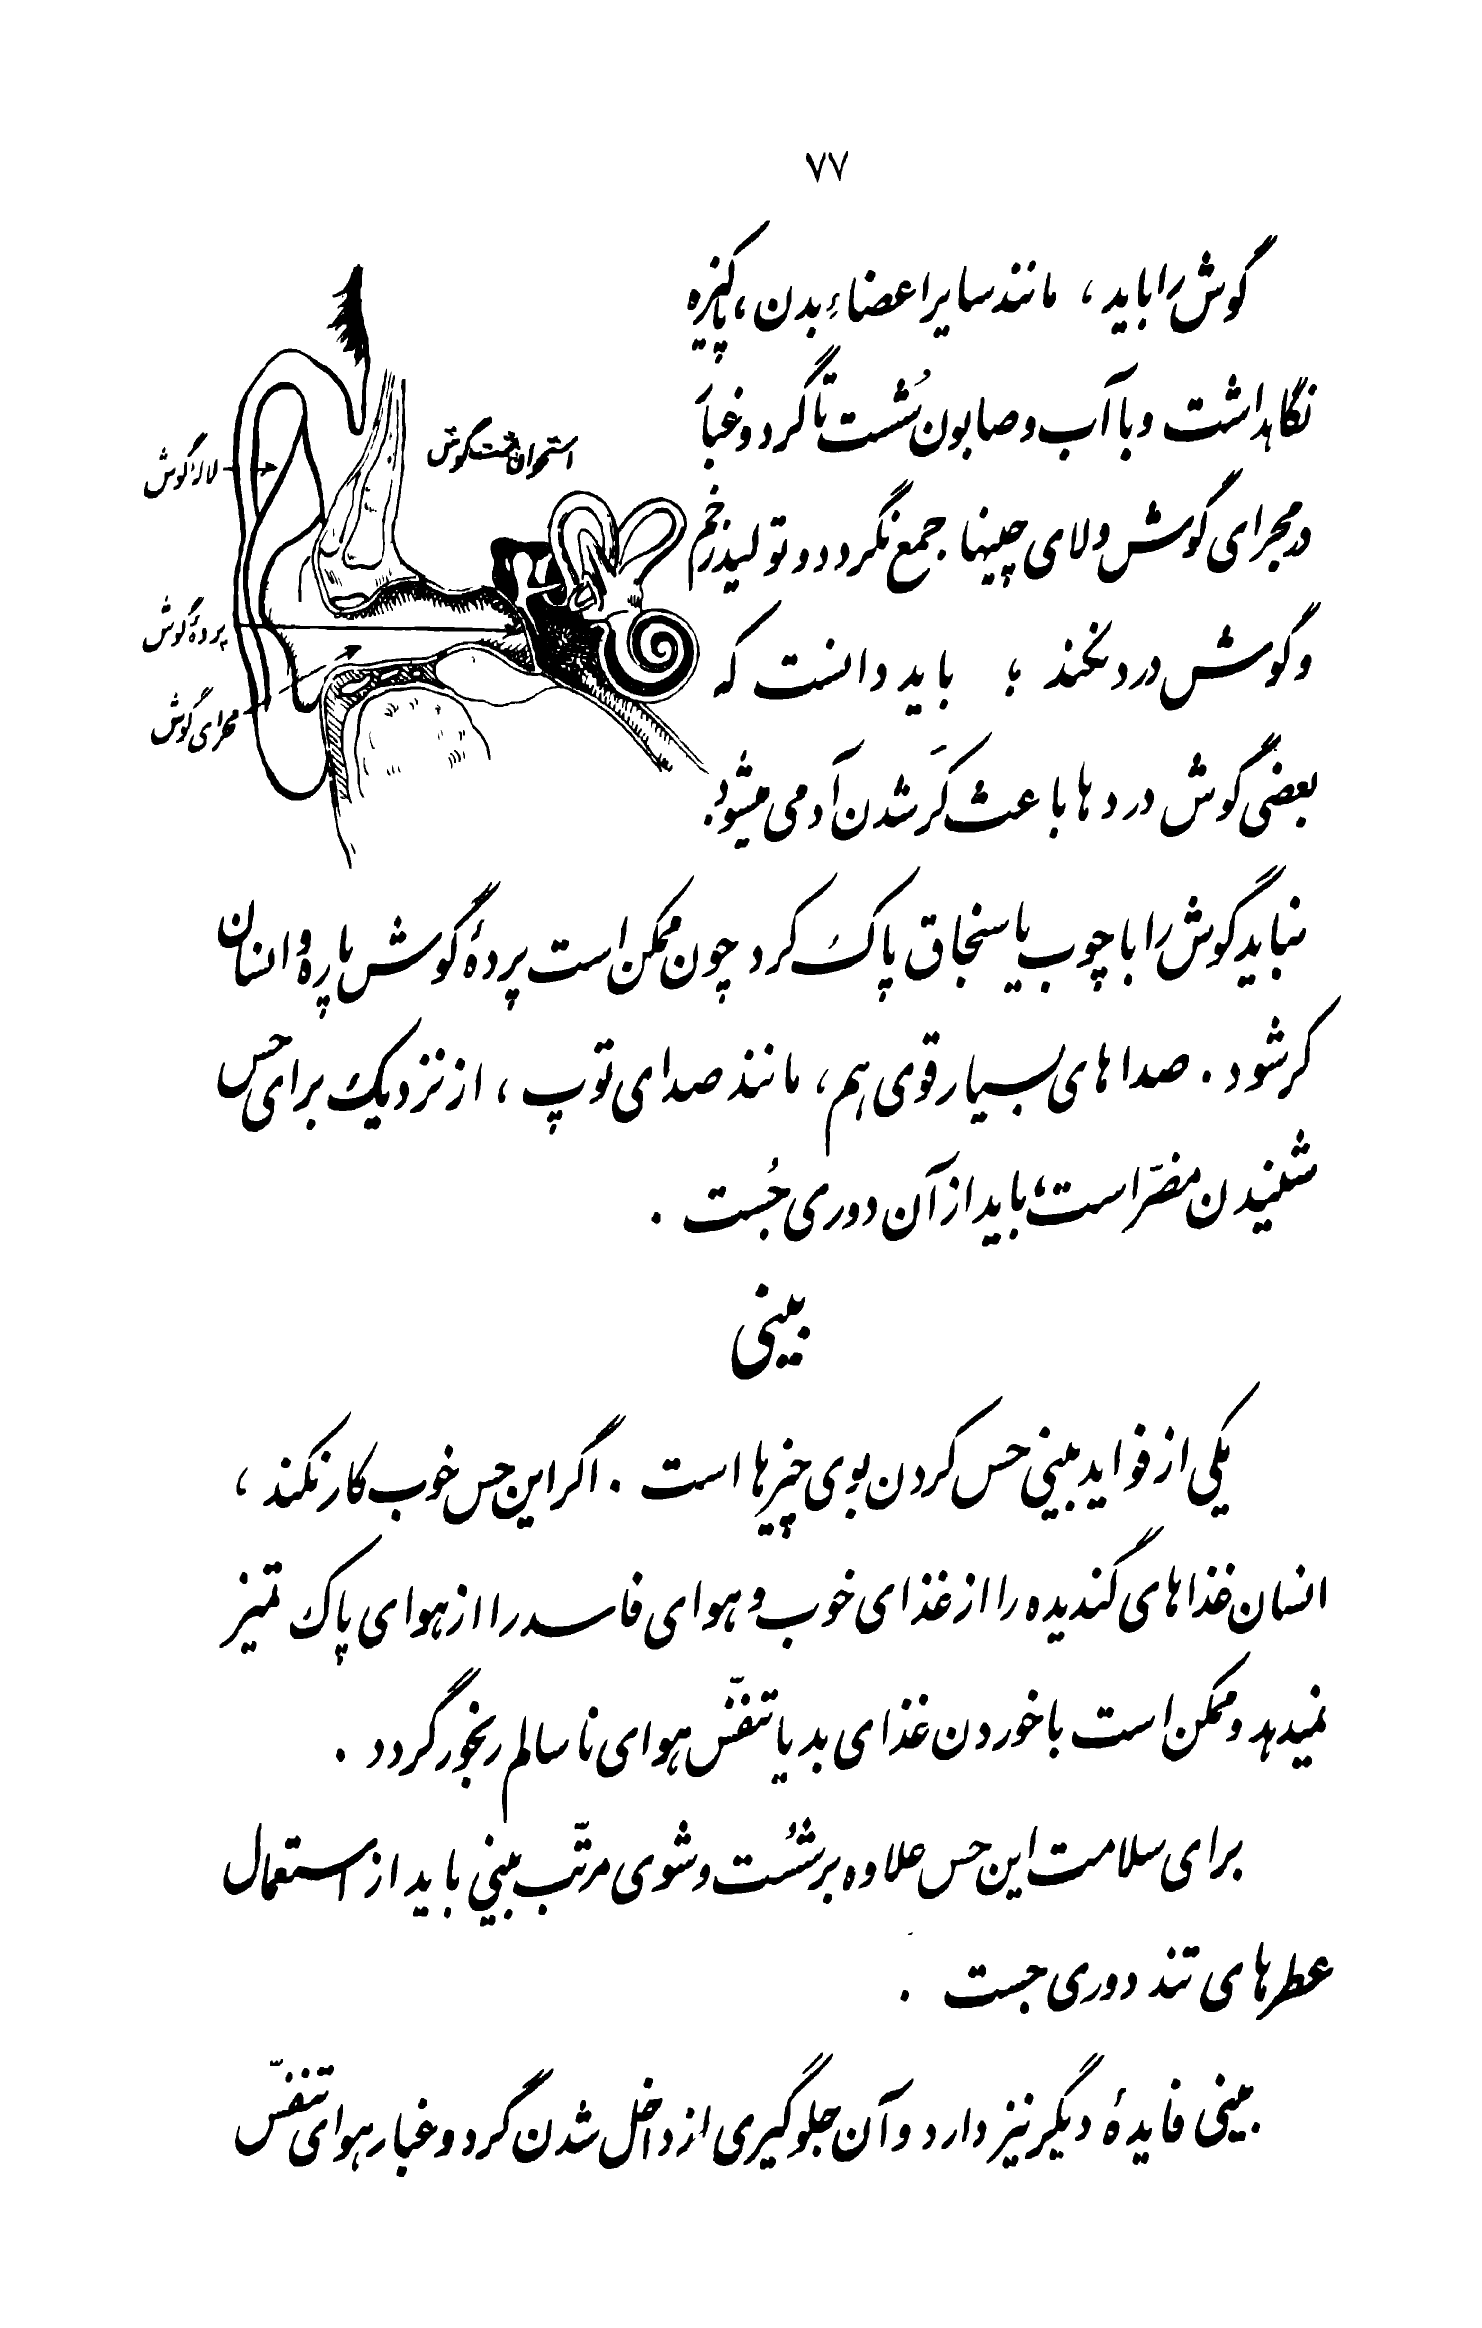 ۷۷
گوش را باید ، مانند سایر اعضاءِ بدن ، پاکیزه
نگاهداشت و با آب و صابون شُست تا گرد و غبار
در مجرای گوش و لای چینها جمع نگردد و تولید زخم
و گوش درد نکند ؛ باید دانست که
بعضی گوش دردها باعث کَر شدن آدمی میشود.
نباید گوش را با چوب یا سنجاق پاک کرد چون ممکن است پردهٔ گوش پاره و انسان
کر شود . صداهای بسیار قوی هم ، مانند صدای توپ ، از نزدیک برای حس
شنیدن مضرّ است ؛ باید از آن دوری جُست .
استخوان پشت گوش
لالهٔ گوش
پردهٔ گوش
مجرای گوش
بینی
یکی از فواید بینی حس کردن بوی چیزها است . اگر این حس خوب کار نکند ،
انسان غذاهای گندیده را از غذای خوب و هوای فاسد را از هوای پاک تمیز
نمیدهد و ممکن است با خوردن غذای بد یا تنفّس هوای ناسالم رنجور گردد .
برای سلامت این حس علاوه بر شُست و شوی مرتّب بینی باید از استعمال
عطرهای تند دوری جست .
بینی فایدهٔ دیگر نیز دارد و آن جلوگیری از داخل شدن گرد و غبار هوای تنفّس